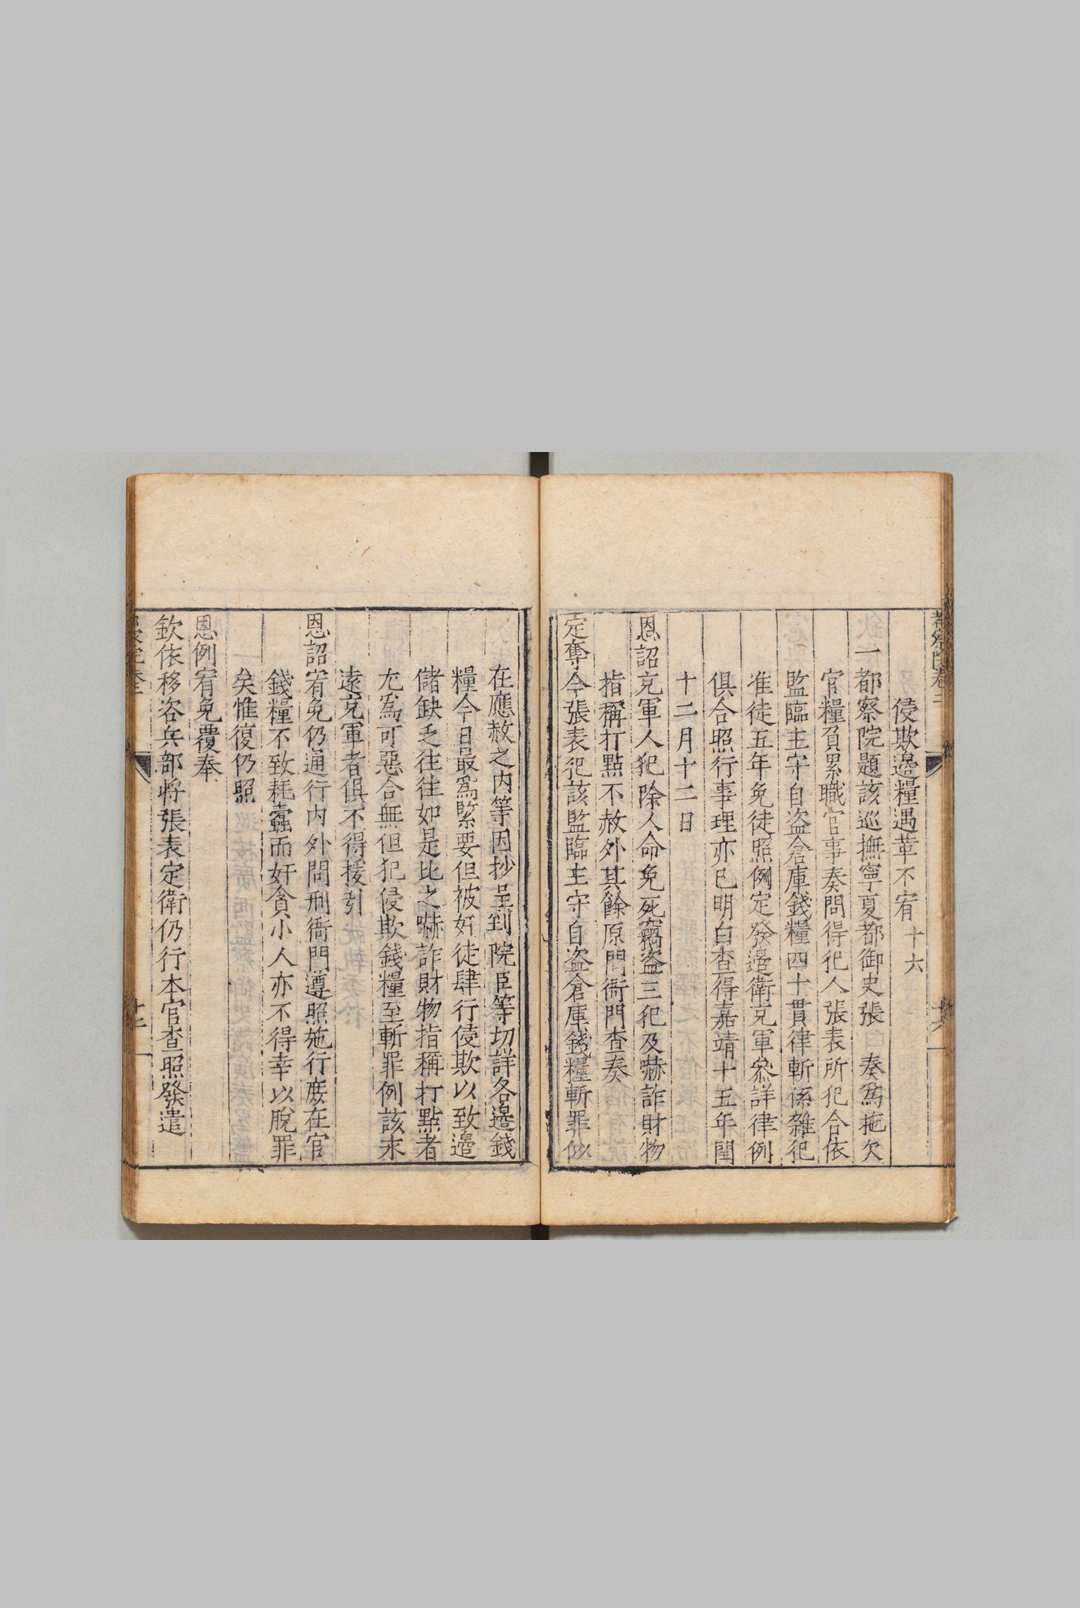 侵欺邊糧遇革不宥十六
一都察院題該巡撫寧夏都御史張 奏爲拖欠
官糧負累職官事奏問得犯人張表所犯合依
監臨主守自盜倉庫錢糧四十貫律斬係雜犯
准徒五年免徒照例定發邊衛充軍叅詳律例
俱合照行事理亦已明白查得嘉靖十五年閏
十二月十二日
恩詔充軍人犯除人命免死竊盜三犯及嚇詐財物
指稱打點不赦外其餘原問衙門查奏
定奪今張表犯該監臨主守自盜倉庫錢糧斬罪似
在應赦之内等因抄呈到院臣等切詳各邊錢
糧今日最爲緊要但被奸徒肆行侵欺以致邊
儲缺乏往往如是比之嚇詐財物指稱打點者
尤爲可惡合無但犯侵欺錢糧至斬罪例該永
遠充軍者俱不得援引
恩詔宥免仍通行内外問刑衙門遵照施行庶在官
錢糧不致耗蠹而奸貪小人亦不得幸以脫罪
矣惟復仍照
恩例宥免覆奉
欽依移咨兵部將張表定衛仍行本官查照發遣